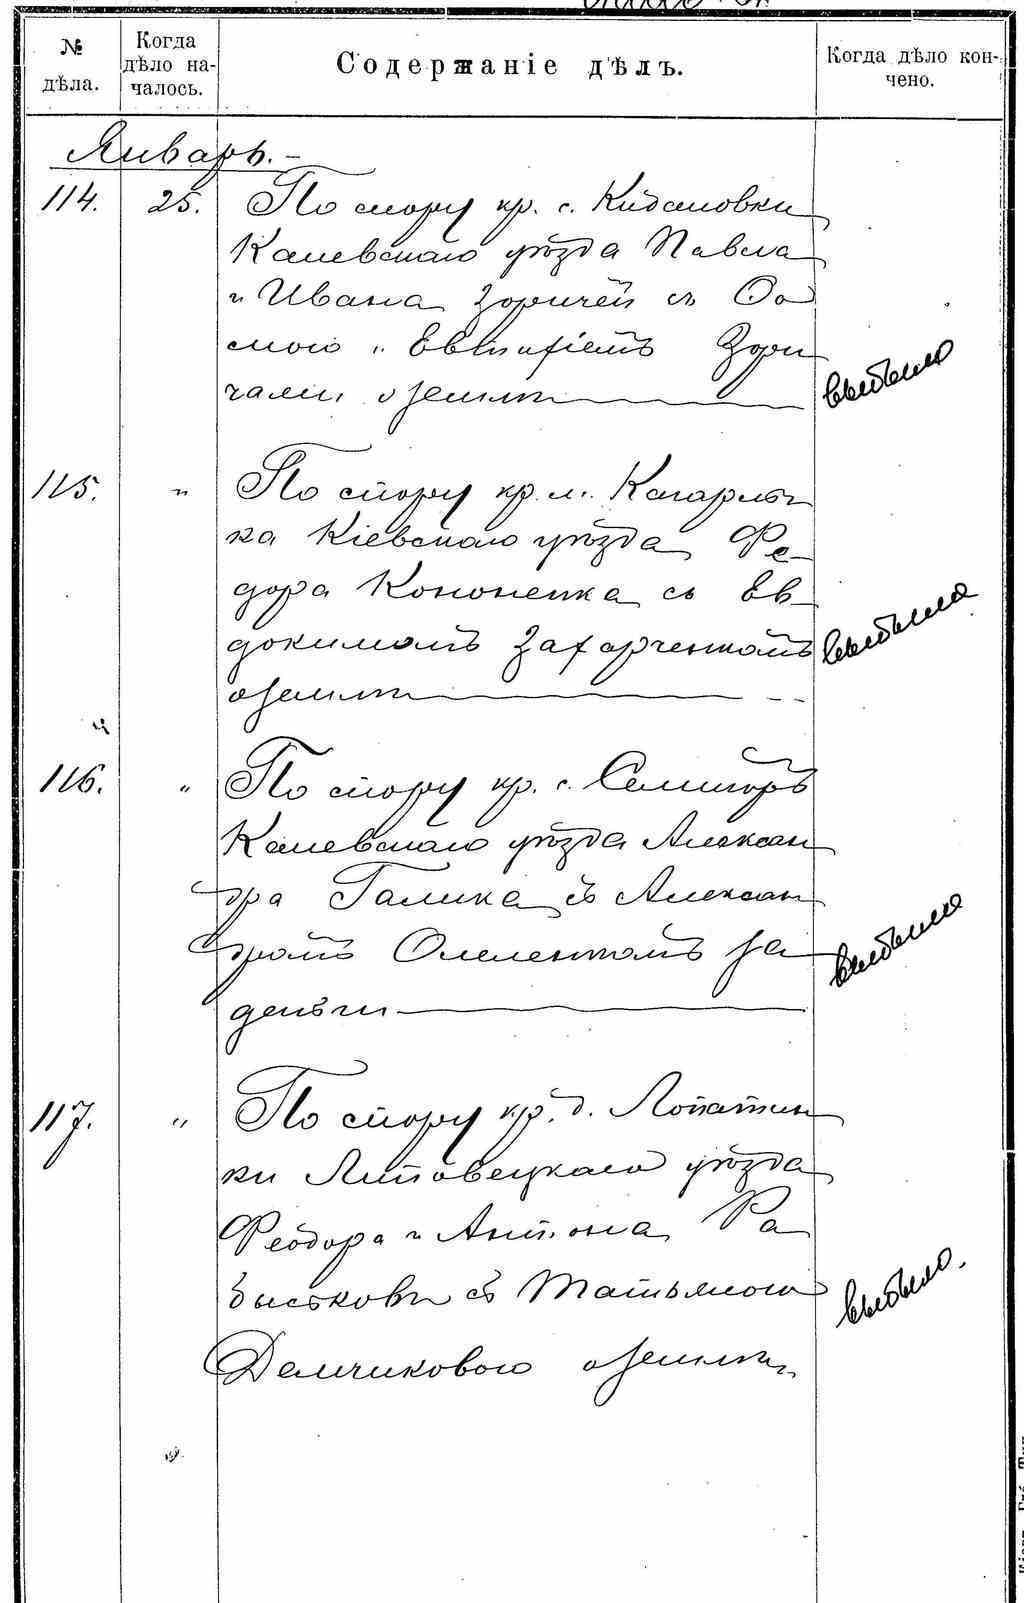 № дѣла.
Когда дѣло на-
чалось.
Содержаніе дѣлъ.
Когда дѣло кон-
чено.
Январь.
114. 25. По спору кр. с. Кидановки
Каневскаго уѣзда Павла
и Ивана Зоричей съ Оо
мою и Евтифіемъ Зори
чами о землѣ
выбыло
115. " По спору кр. м. Кагарлы
ка Кіевскаго уѣзда Фе-
дора Кононенка съ Ев-
докимомъ Захарченкомъ
о землѣ
выбыло
116. " По спору кр. с. Семигоръ
Каневскаго уѣзда Алексан
дра Галика съ Алексан
дромъ Омеленкомъ за
деньги
выбыло
117. " По спору кр. д. Лопатин
ки Липовецкаго уѣзда
Феодора и Антона Ра
съ Татьяною
Демчиковою о землѣ
выбыло.